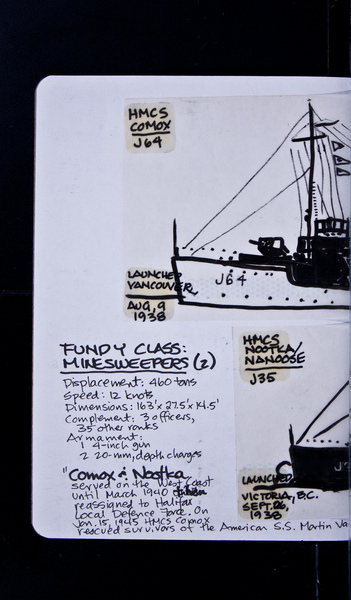 HMCS
COMOX
J64
LAUNCHED
VANCOUVER,
AUG, 9
1938
J64
HMCS
NOOTKA/
NANOOSE
J35
LAUNCHED
VICTORIA, B.C.
SEPT. 26,
1938
FUNDY CLASS:
MINESWEEPERS (2)
Displacement: 460 tons
Speed: 12 knots
Dimensions: 163' x 27.5' x 14.5'
Complement: 3 officers,
35 other ranks
Armament:
1 4-inch gun
2 20-mm, depth charges
"Comox & Nootka
served on the West Coast
until March 1940
reassigned to Halifax
Local Defence Force. On
Jan. 15, 1945 HMCS Comox
rescued survivors of the American S.S. Martin Va